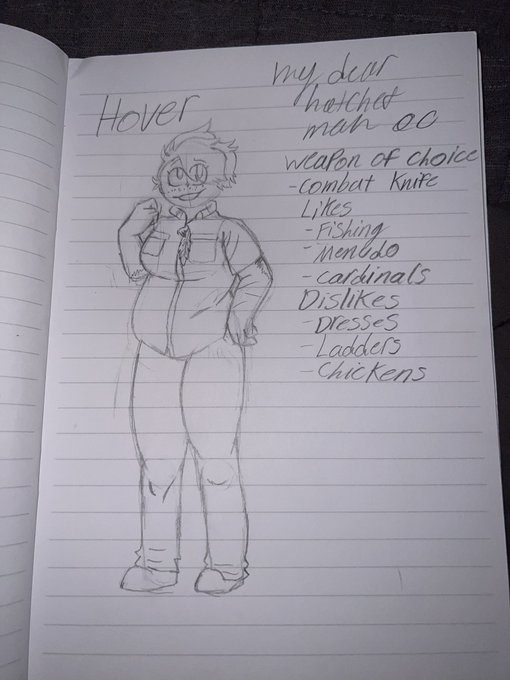 Hover
my dear
hatchet
man OC
weapon of choice
- combat knife
Likes
- Fishing
- Menudo
- cardinals
Dislikes
- Dresses
- Ladders
- Chickens